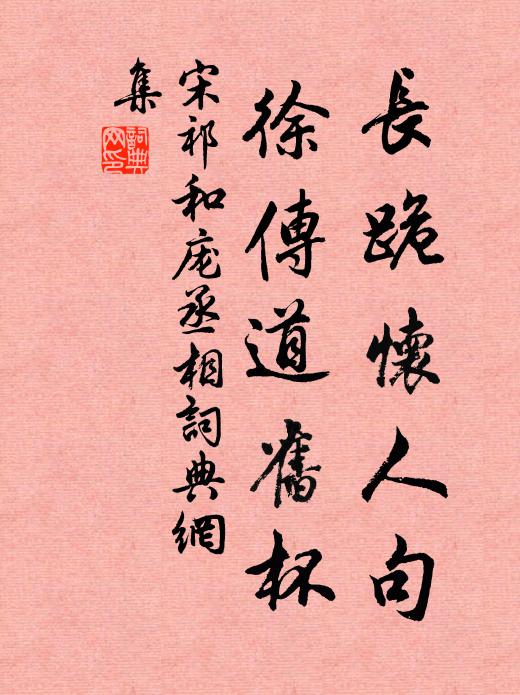 長跪懷人句
徐傳道舊杯
宋祁和庞丞相詞典網
集
詞典网印